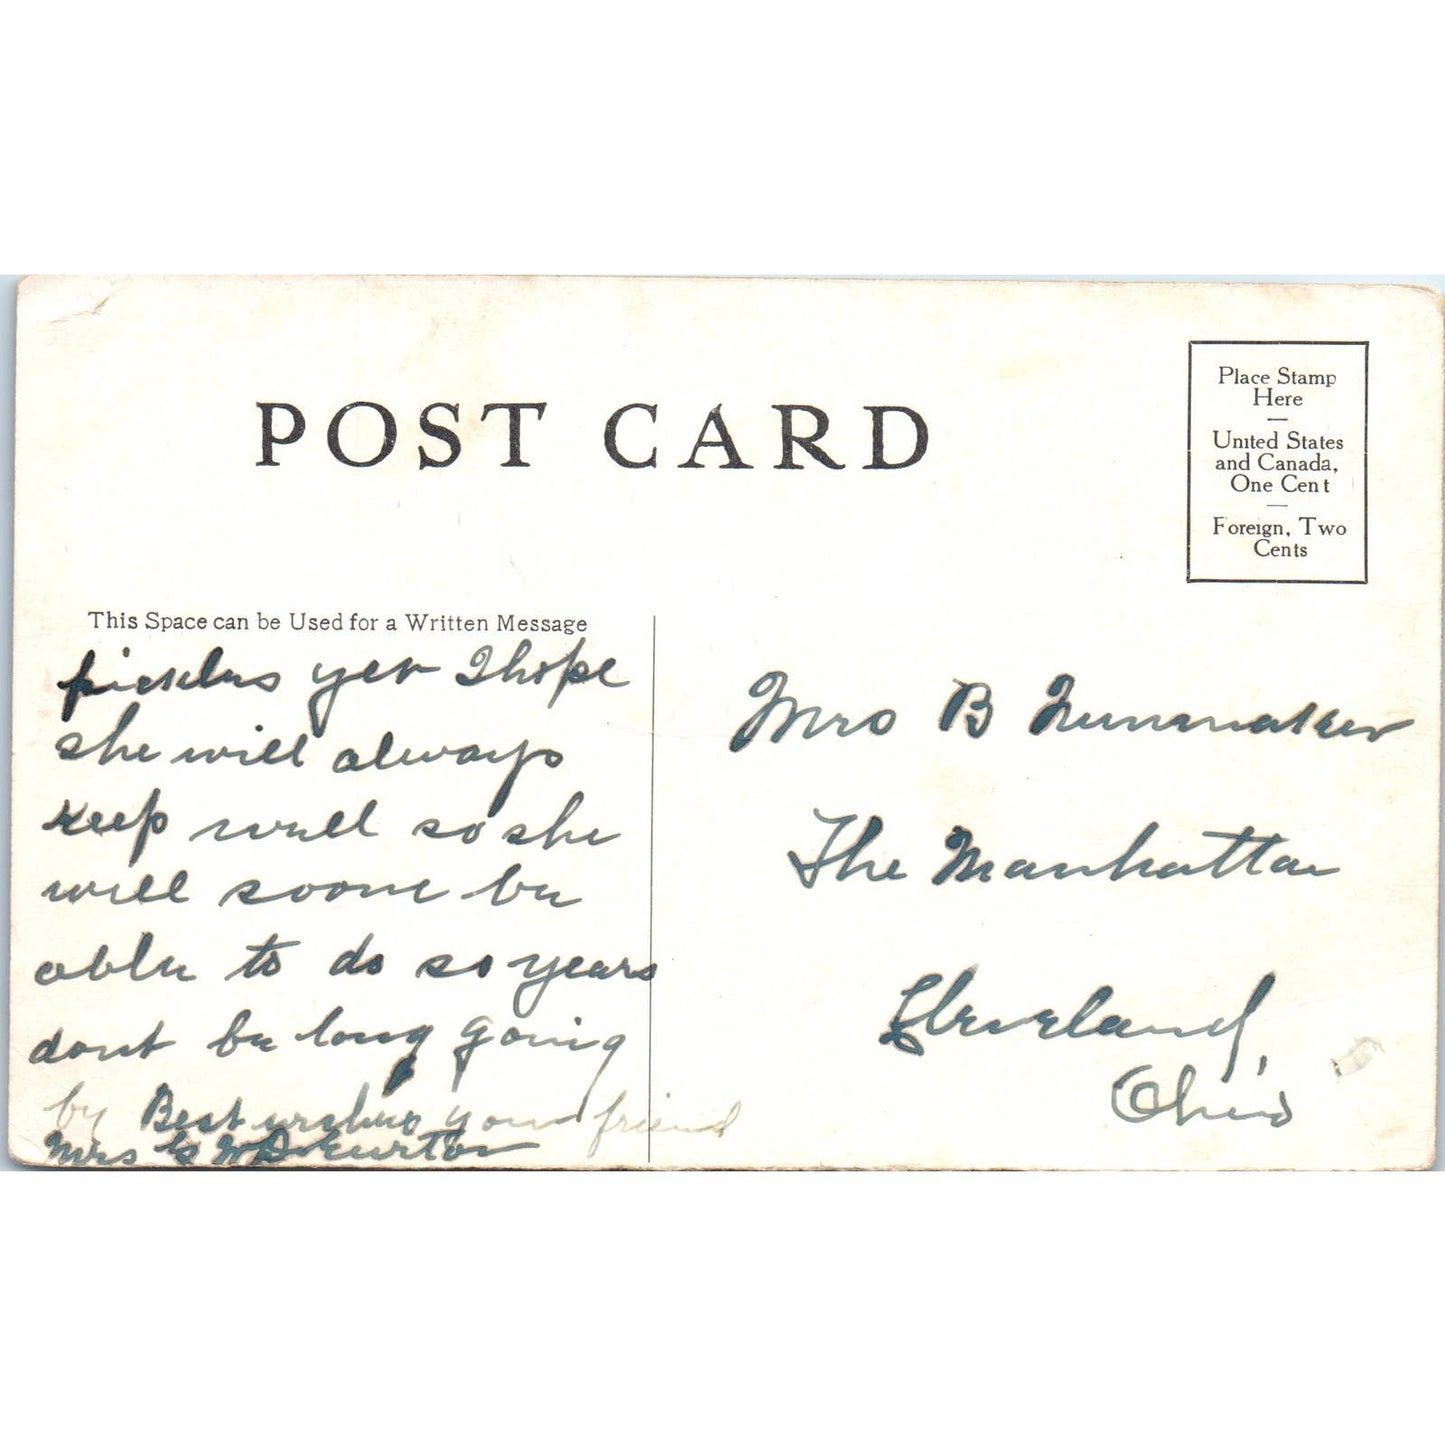 POST CARD
Place Stamp
Here
United States
and Canada,
One Cent
Foreign, Two
Cents
This Space can be Used for a Written Message
pickles yet I hope
she will always
keep well so she
will soone be
able to do so years
dont be long going
by Best wishes your friend
Mrs G W
Mrs B Nunamaker
The Manhattan
Cleveland,
Ohio